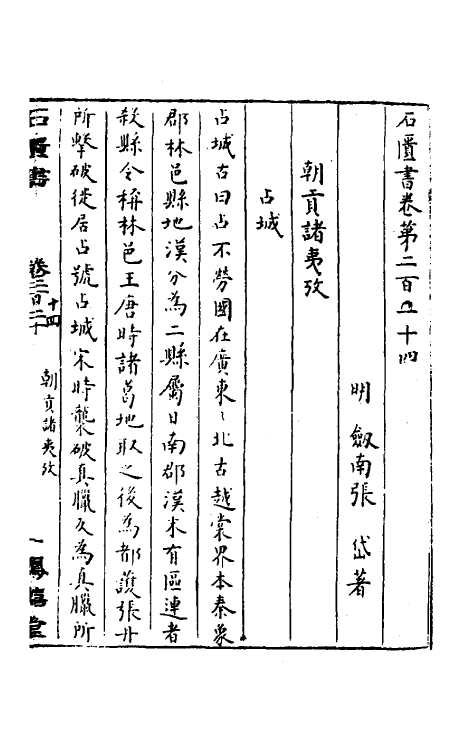 石匱書卷第二百二十四
明 劔南張 岱著
朝貢諸夷攷
占城
占城古曰占不勞國在廣東〻北古越棠界本秦象
郡林邑縣地漢分為二縣屬日南郡漢末有區連者
殺縣令稱林邑王唐時諸葛地取之後為都護張舟
所擊破徙居占號占城宋時襲破真臘反為真臘所
石匱書 卷二百二十四 朝貢諸夷攷 一 鳳嬉堂